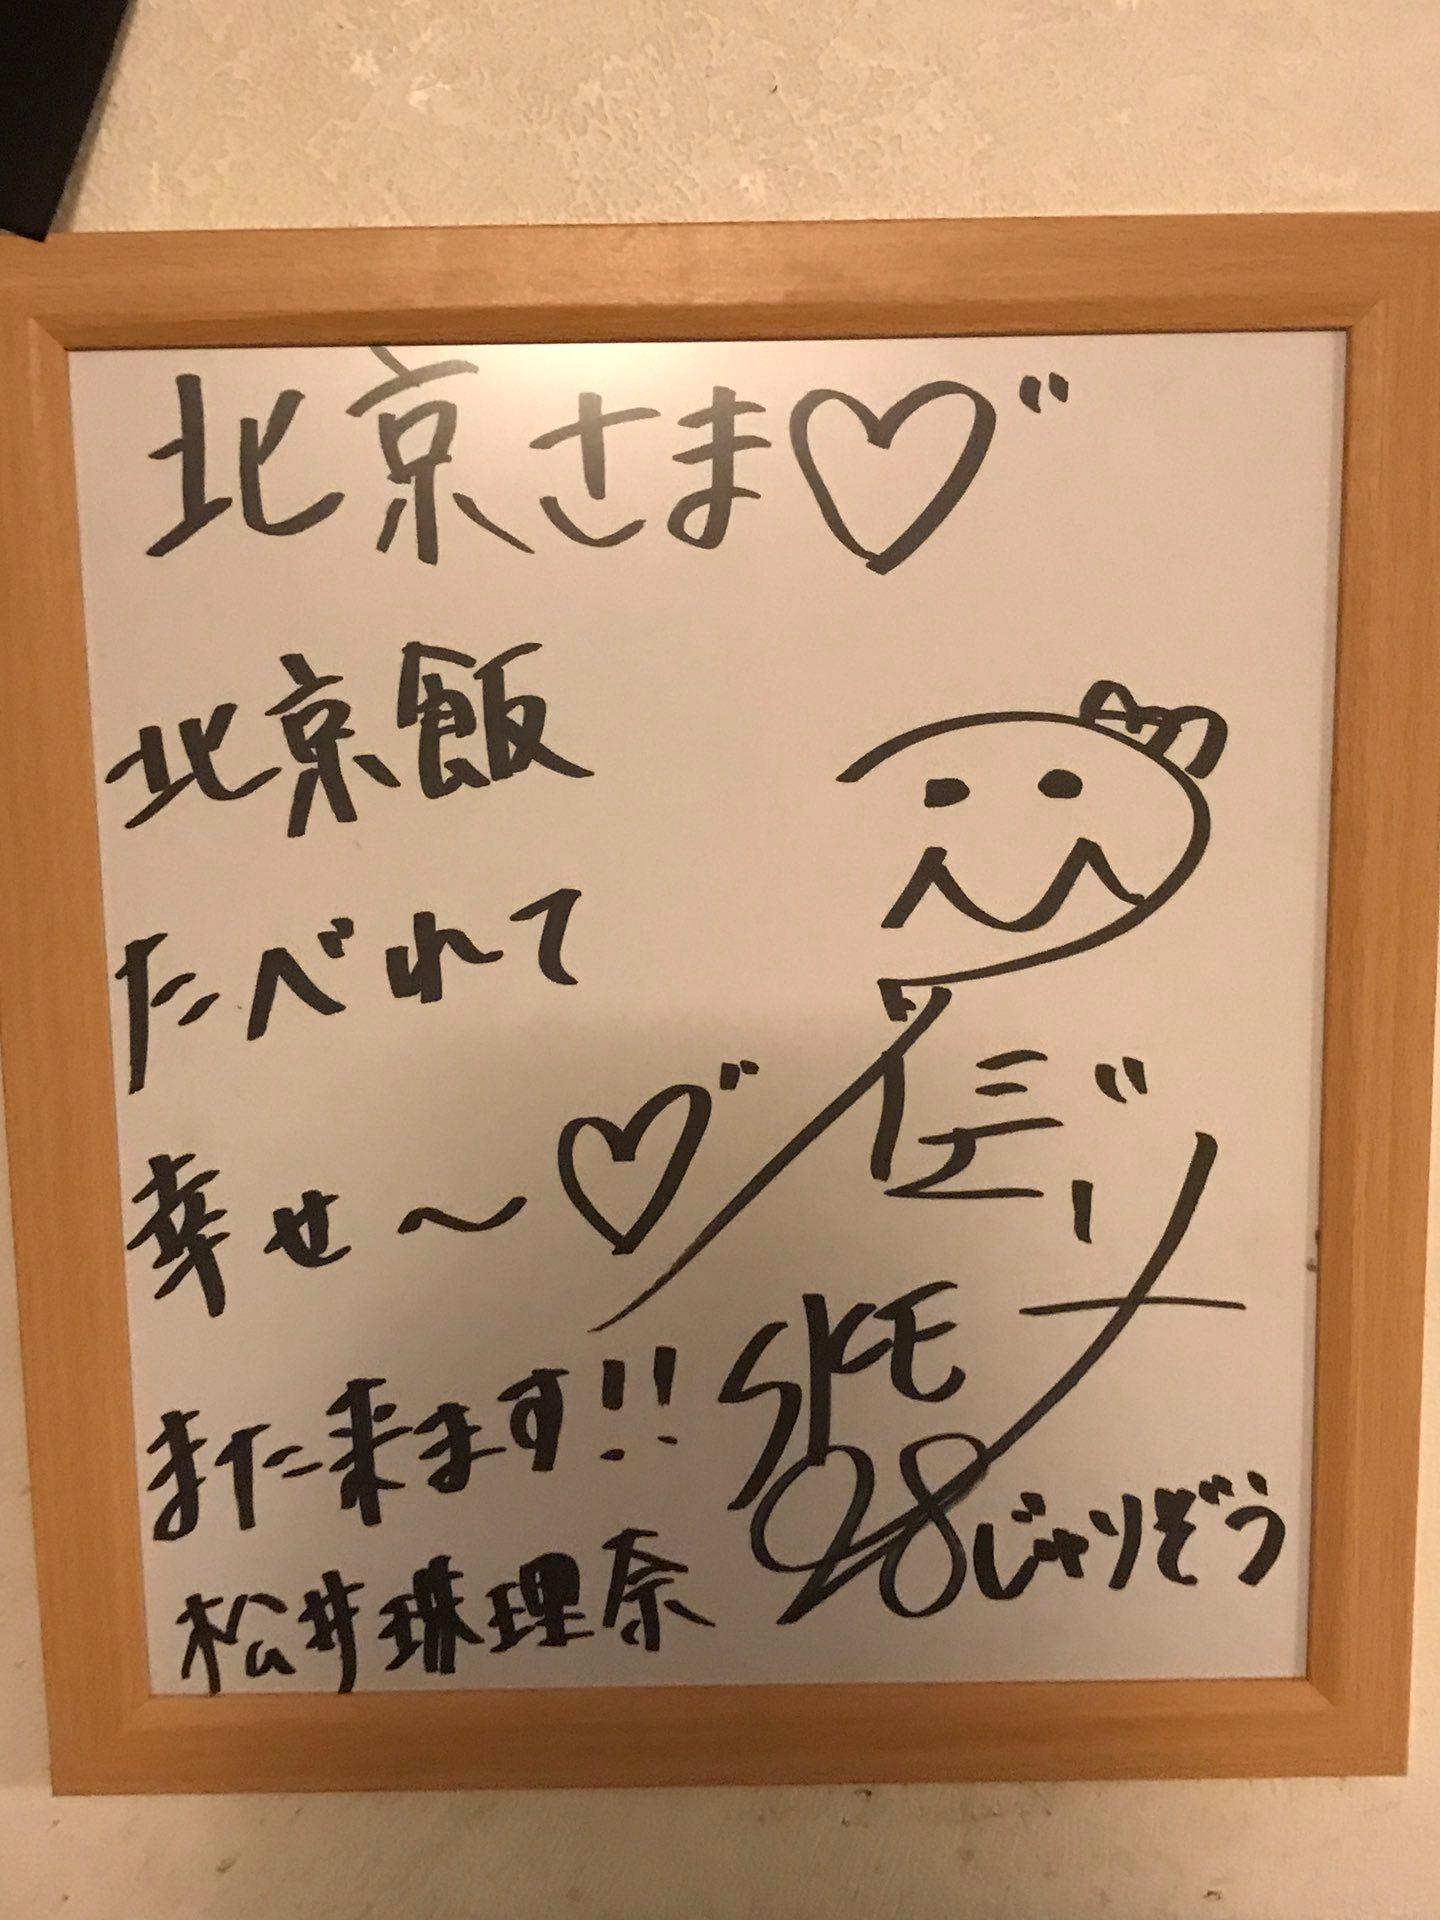 北京さま♡゛
北京飯
たべれて
幸せ〜♡゛
また来ます!!
松井珠理奈
SKE
じゃりぞう